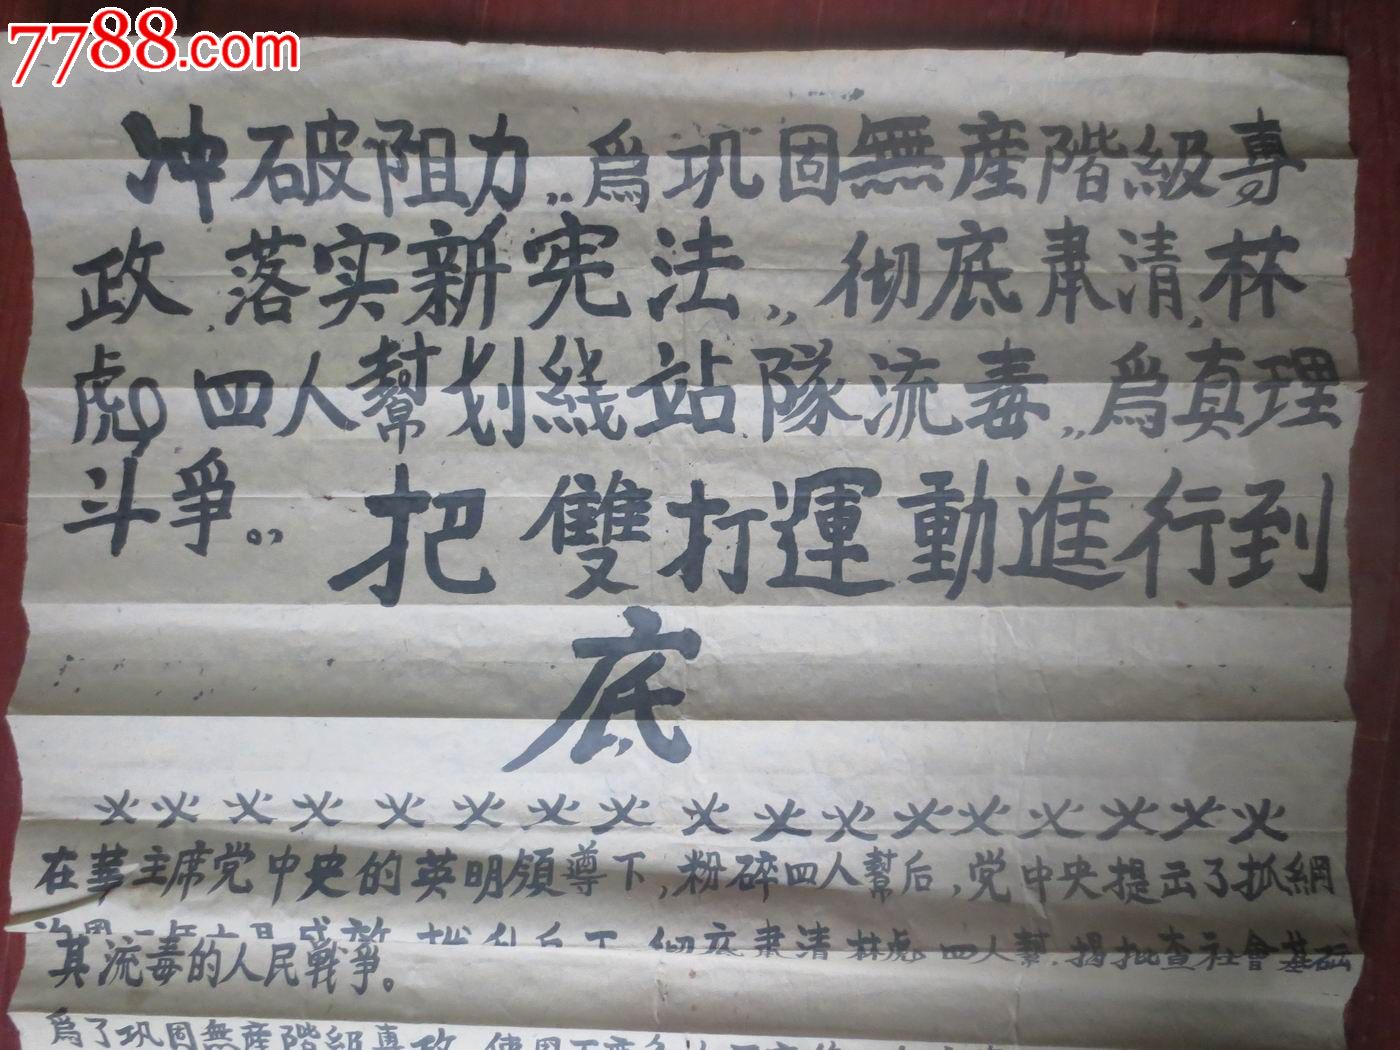 7788.com
冲破阻力,,爲巩固無産階級專
政,落实新宪法,,彻底肃清,林
彪,四人幫划綫站隊流毒,,爲真理
斗爭。,,把雙打運動進行到
底
在華主席党中央的英明領導下,粉碎四人幫后,党中央提出了抓綱
彻底肃清林彪四人幫.揭批查社會基础
其流毒的人民戰爭。
爲了巩固無産階級專政